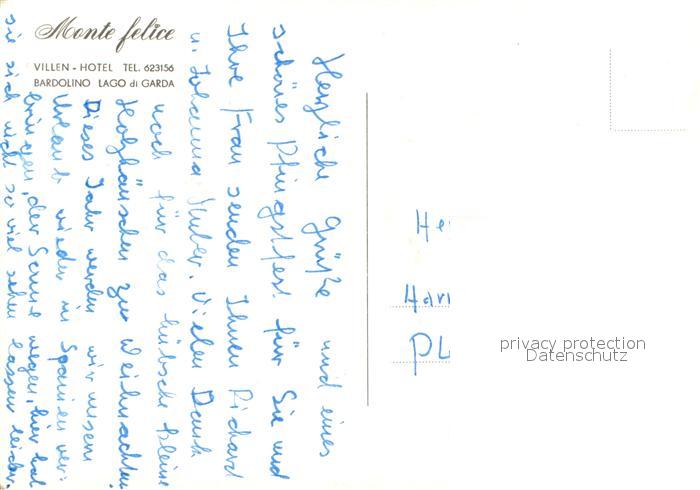 Monte felice
VILLEN - HOTEL TEL. 623156
BARDOLINO LAGO di GARDA
Herzliche Grüße und eines
schönes Pfingstfest für Sie und
Ihre Frau senden Ihnen Richard
u. Johanna Huber. Vielen Dank
noch für das hübsche kleine
Holzhäuschen zu Weihnachten.
Dieses Jahr werden wir unsern
Urlaub wieder in Spanien ver-
bringen, der Sonne wegen, hier hat
sie sich nicht so viel sehen lassen leider.
He
Har
PL
privacy protection
Datenschutz